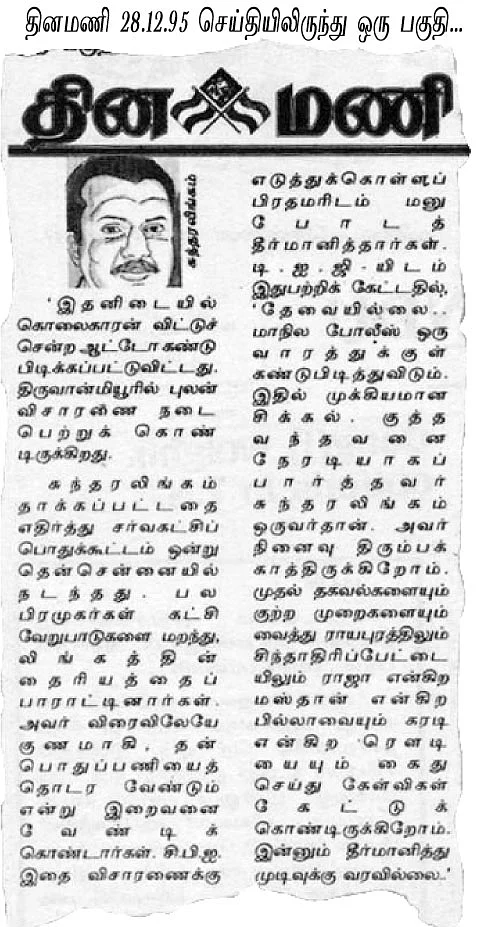 தினமணி 28.12.95 செய்தியிலிருந்து ஒரு பகுதி...
தினமணி
சுந்தரலிங்கம்
'இதனிடையில்
கொலைகாரன் விட்டுச்
சென்ற ஆட்டோ கண்டு
பிடிக்கப்பட்டுவிட்டது.
திருவான்மியூரில் புலன்
விசாரணை நடை
பெற்றுக் கொண்
டிருக்கிறது.
சுந்தரலிங்கம்
தாக்கப்பட்டதை
எதிர்த்து சர்வகட்சிப்
பொதுக்கூட்டம் ஒன்று
தென்சென்னையில்
நடந்தது. பல
பிரமுகர்கள் கட்சி
வேறுபாடுகளை மறந்து,
லிங்கத்தின்
தைரியத்தைப்
பாராட்டினார்கள்.
அவர் விரைவிலேயே
குணமாகி, தன்
பொதுப்பணியைத்
தொடர வேண்டும்
என்று இறைவனை
வேண்டிக்
கொண்டார்கள். சி.பி.ஐ.
இதை விசாரணைக்கு
எடுத்துக்கொள்ளப்
பிரதமரிடம் மனு
போடத்
தீர்மானித்தார்கள்.
டி.ஐ.ஜி-யிடம்
இதுபற்றிக் கேட்டதில்,
'தேவையில்லை..
மாநில போலீஸ் ஒரு
வாரத்துக்குள்
கண்டுபிடித்துவிடும்.
இதில் முக்கியமான
சிக்கல். குத்த
வந்தவனை
நேரடியாகப்
பார்த்தவர்
சுந்தரலிங்கம்
ஒருவர்தான். அவர்
நினைவு திரும்பக்
காத்திருக்கிறோம்.
முதல் தகவல்களையும்
குற்ற முறைகளையும்
வைத்து ராயபுரத்திலும்
சிந்தாதிரிப்பேட்டை
யிலும் ராஜா என்கிற
மஸ்தான் என்கிற
பில்லாவையும் கரடி
என்கிற ரௌடி
யையும் கைது
செய்து கேள்விகள்
கேட்டுக்
கொண்டிருக்கிறோம்.
இன்னும் தீர்மானித்து
முடிவுக்கு வரவில்லை.'